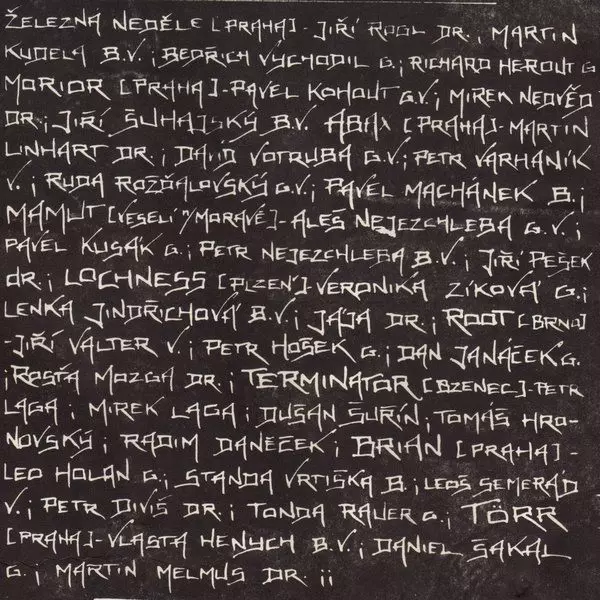 ŽELEZNA NEDĚLE [PRAHA] - JIŘÍ ROGL DR. ¡ MARTIN
KUDELA B.V. ¡ BEDŘICH VYCHODIL G. ¡ RICHARD HEROUT G
MORIOR [PRAHA] - PAVEL KOHOUT G.V. ¡ MIREK NEDVĚD
DR. ¡ JIŘÍ ŠUHAJSKÝ B.V. ABAX [PRAHA] - MARTIN
LINHART DR. ¡ DAVID VOTRUBA G.V. ¡ PETR VARHANÍK
V. ¡ RUDA ROŽĎALOVSKÝ G.V. ¡ PAVEL MACHÁNEK B. ¡
MAMUT [VESELÍ N/MORAVĚ] - ALEŠ NEJEZCHLEBA G.V. ¡
PAVEL KUSÁK G. ¡ PETR NEJEZCHLEBA B.V. ¡ JIŘÍ PEŠEK
DR. ¡ LOCHNESS [PLZEŇ] - VERONIKA ZÍKOVÁ G. ¡
LENKA JINDŘICHOVÁ B.V. ¡ JÁJA DR. ¡ ROOT [BRNO]
- JIŘÍ VALTER V. ¡ PETR HOŠEK G. ¡ DAN JANÁČEK G.
¡ ROSŤA MOZGA DR. ¡ TERMINATOR [BZENEC] - PETR
LAGA ¡ MIREK LAGA ¡ DUŠAN ŠUŘÍN ¡ TOMÁŠ HRO-
NOVSKÝ ¡ RADIM DANĚČEK ¡ BRIAN [PRAHA] -
LEO HOLAN G. ¡ STANDA VRTIŠKA B. ¡ LEOŠ SEMERÁD
V. ¡ PETR DIVIŠ DR. ¡ TONDA RAUER G. ¡ TÖRR
[PRAHA] - VLASTA HENYCH B.V. ¡ DANIEL ŠAKAL
G. ¡ MARTIN MELMUS DR. ¡¡